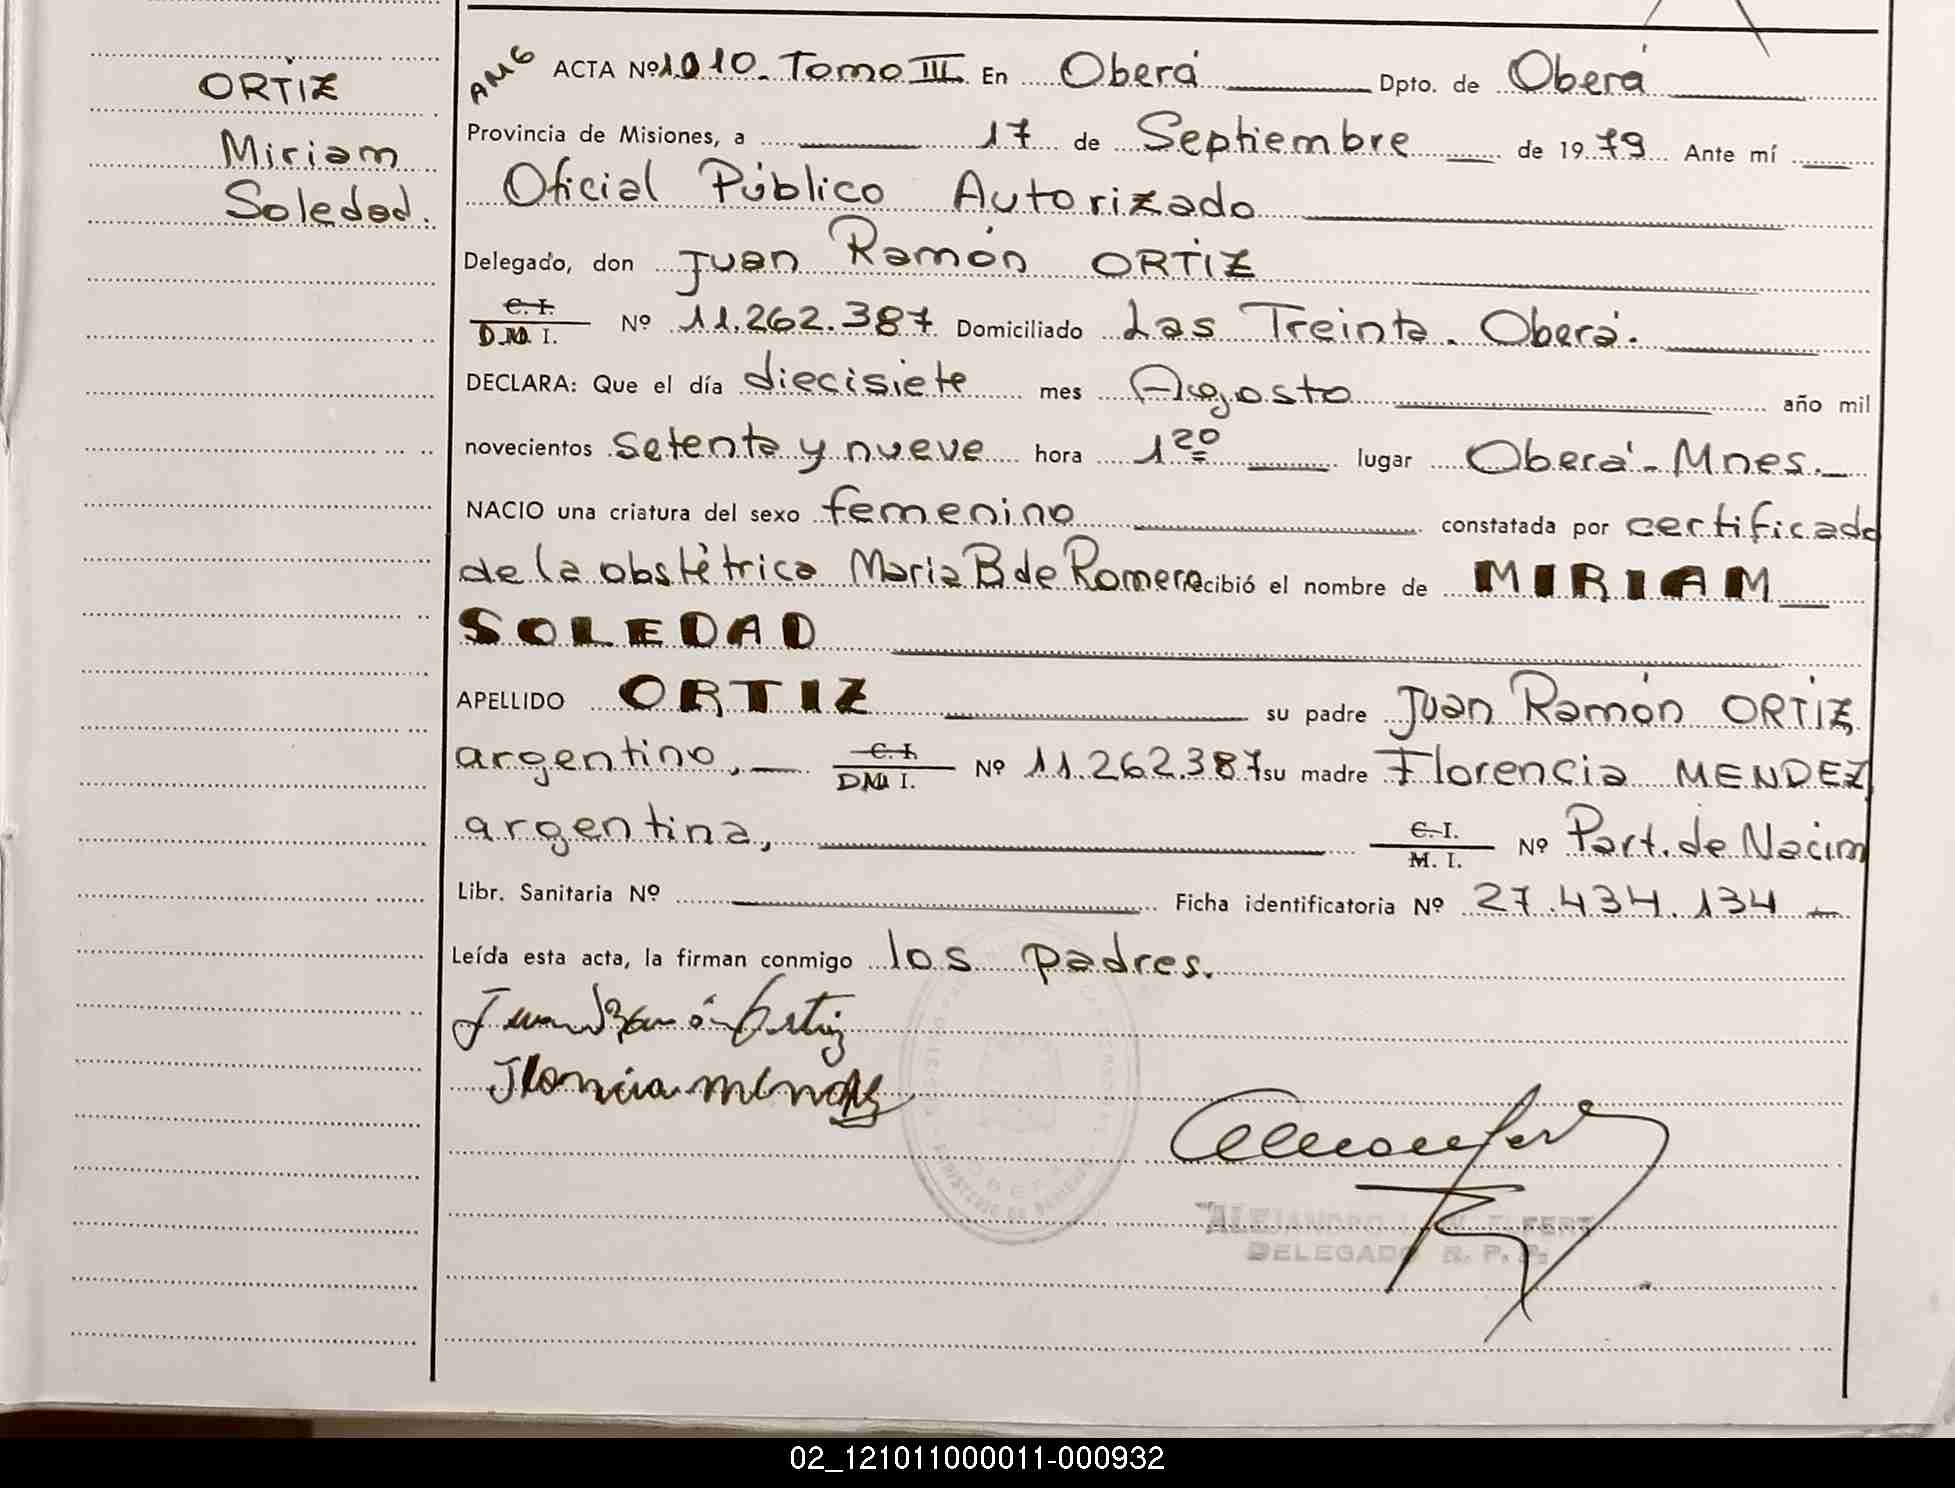 ORTIZ
Miriam
Soledad.
AMG ACTA Nº 1010. Tomo III. En Oberá Dpto. de Oberá
Provincia de Misiones, a 17 de Septiembre de 1979 Ante mí
Oficial Público Autorizado
Delegado, don Juan Ramón ORTIZ
C. I.
D.N. I. Nº 11.262.387 Domiciliado Las Treinta. Oberá.
DECLARA: Que el día diecisiete mes Agosto año mil
novecientos setenta y nueve hora 1²⁰ lugar Oberá - Mnes.
NACIO una criatura del sexo femenino constatada por certificado
de la obstétrica Maria B de Romero recibió el nombre de MIRIAM
SOLEDAD
APELLIDO ORTIZ su padre Juan Ramón ORTIZ,
argentino, C. I.
DN I. Nº 11.262.387 su madre Florencia MENDEZ
argentina, C. I.
M. I. Nº Part. de Nacim
Libr. Sanitaria Nº Ficha identificatoria Nº 27.434.134
Leída esta acta, la firman conmigo los padres.
Juan Ramón Ortiz
Florencia Mendez
ALEJANDRO ELFERT
DELEGADO R. P. P.
02_121011000011-000932